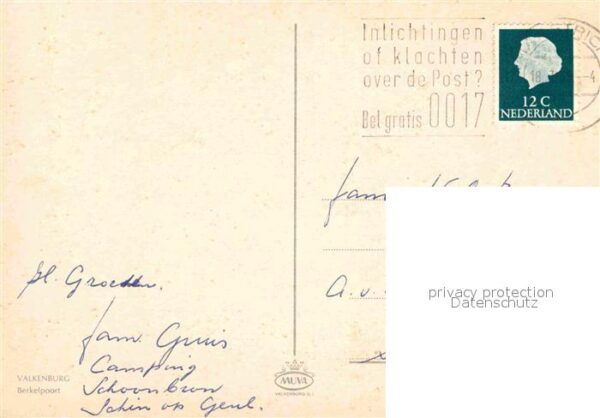 Inlichtingen
of klachten
over de Post?
Bel gratis 0017
18
4
12 C
NEDERLAND
Fam.
A. v.
privacy protection
Datenschutz
hl. Groeten.
Fam.
Camping
Schoonbron
Schin op Geul.
VALKENBURG
Berkelpoort
MUVA
VALKENBURG